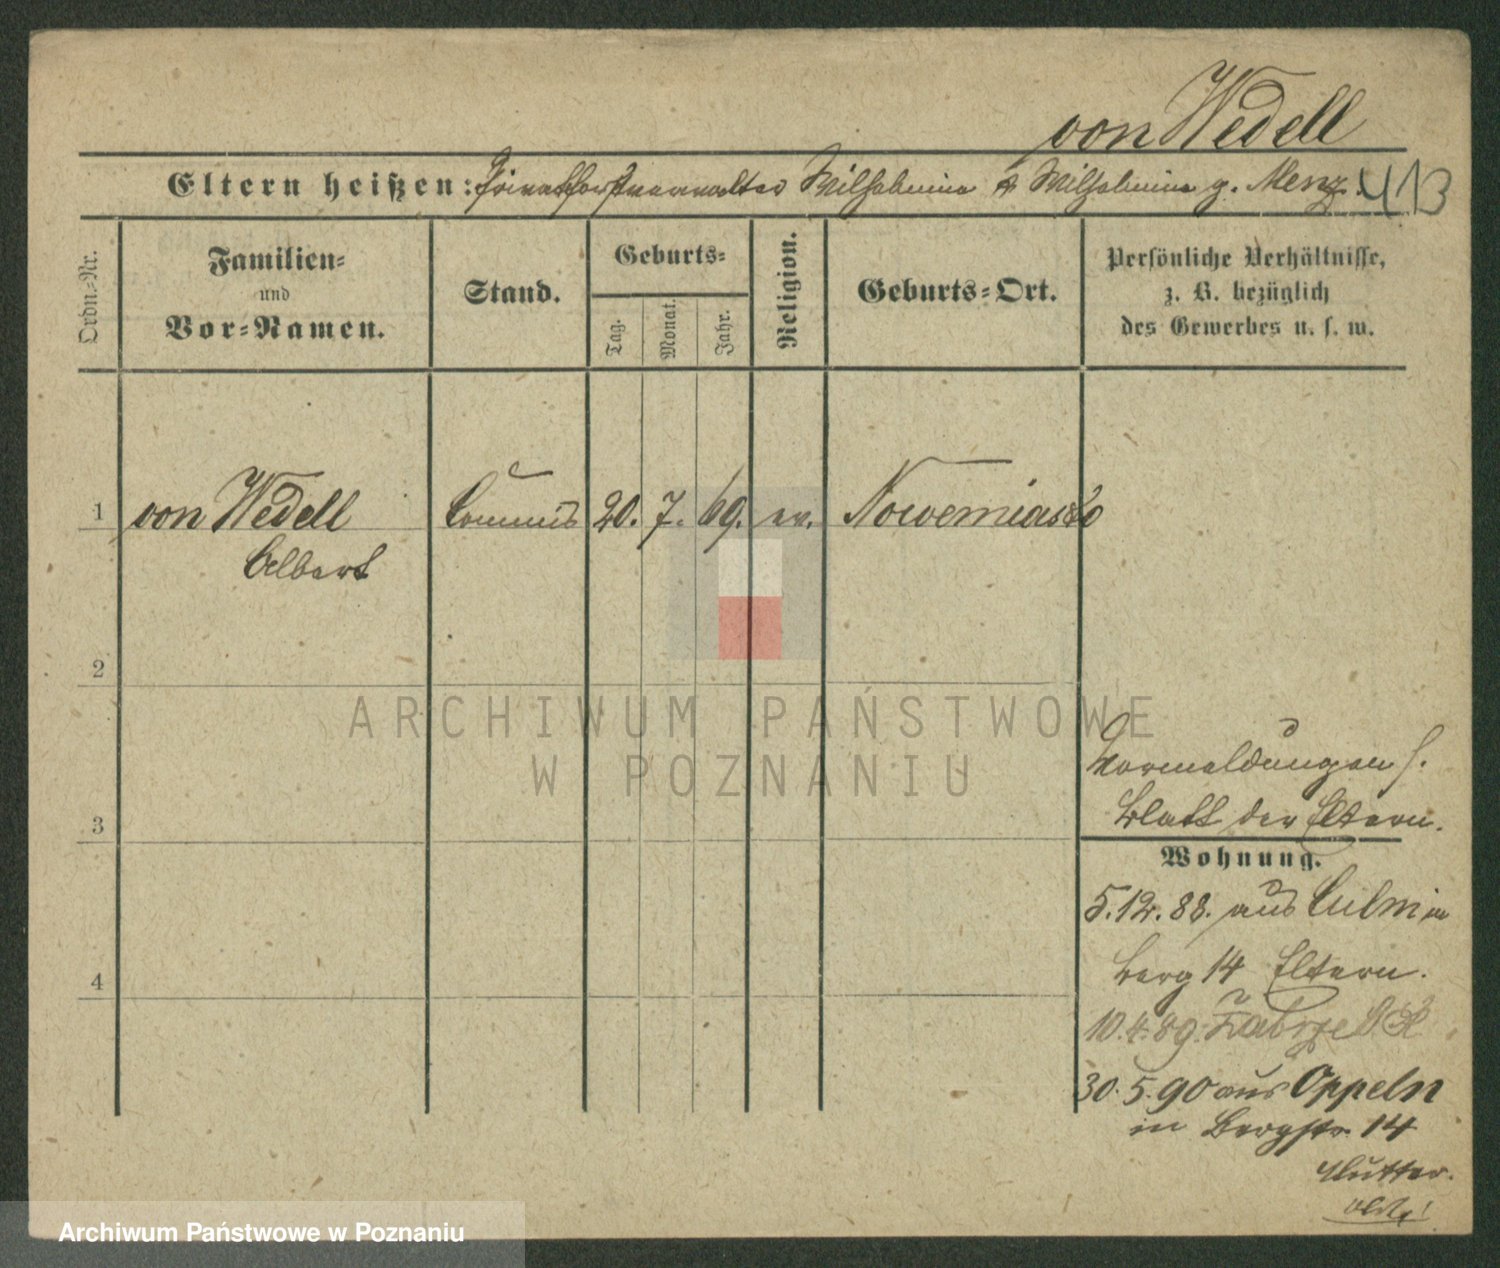 von Wedell
Eltern heißen: Privatforstverwalter Wilhelmine & Wilhelmine g. Menz. 413
Ordn.-Nr.
Familien-
und
Vor-Namen.
Stand.
Geburts-
Tag.
Monat.
Jahr.
Religion.
Geburts-Ort.
Persönliche Verhältnisse,
z. B. bezüglich
des Gewerbes u. s. w.
1 von Wedell Commis 20. 7. 69. ev. Nowemiasto
Albert
2
ARCHIWUM PAŃSTWOWE
W POZNANIU
Vormeldungen s.
3 Blatt der Eltern.
Wohnung.
5.12.88. aus Culm in
4 Berg 14 Eltern.
10.4.89. Zabrze
30.5.90 aus Oppeln
in Bergstr. 14
Mutter.
Archiwum Państwowe w Poznaniu